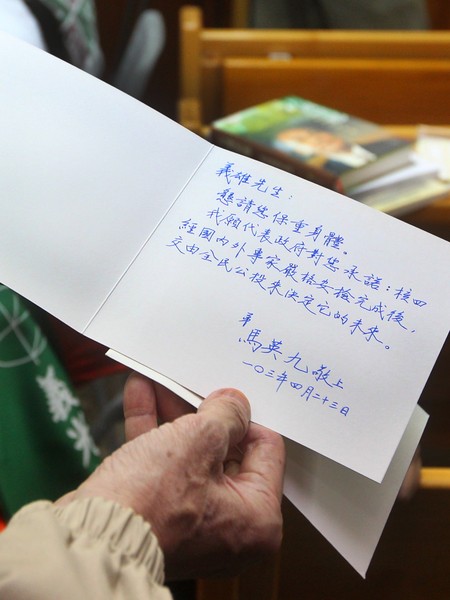 義雄先生:
懇請您保重身體。
我願代表政府對您承諾:核四
經國內外專家嚴格安檢完成後,
交由全民公投來決定它的未來。
弟
馬英九敬上
一〇三年四月二十三日
義光